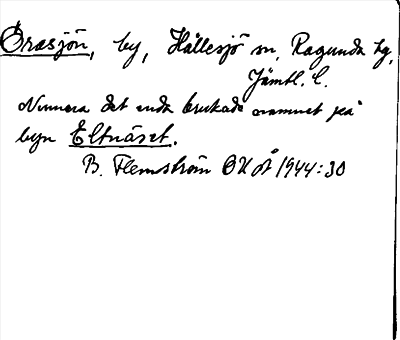 Örasjön, by, Hällesjö sn, Ragunda tg,
Jämtl. l.
Numera det enda brukade namnet på
byn Eltnäset.
B. Flemström OUÅ 1944:30